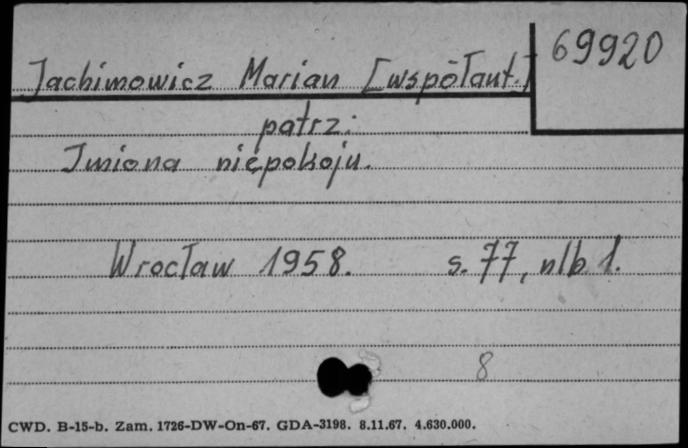 69920
Jachimowicz Marian [współaut.]
patrz:
Imiona niepokoju.
Wrocław 1958. s. 77, nlb 1.
8
CWD. B-15-b. Zam. 1726-DW-On-67. GDA-3198. 8.11.67. 4.630.000.